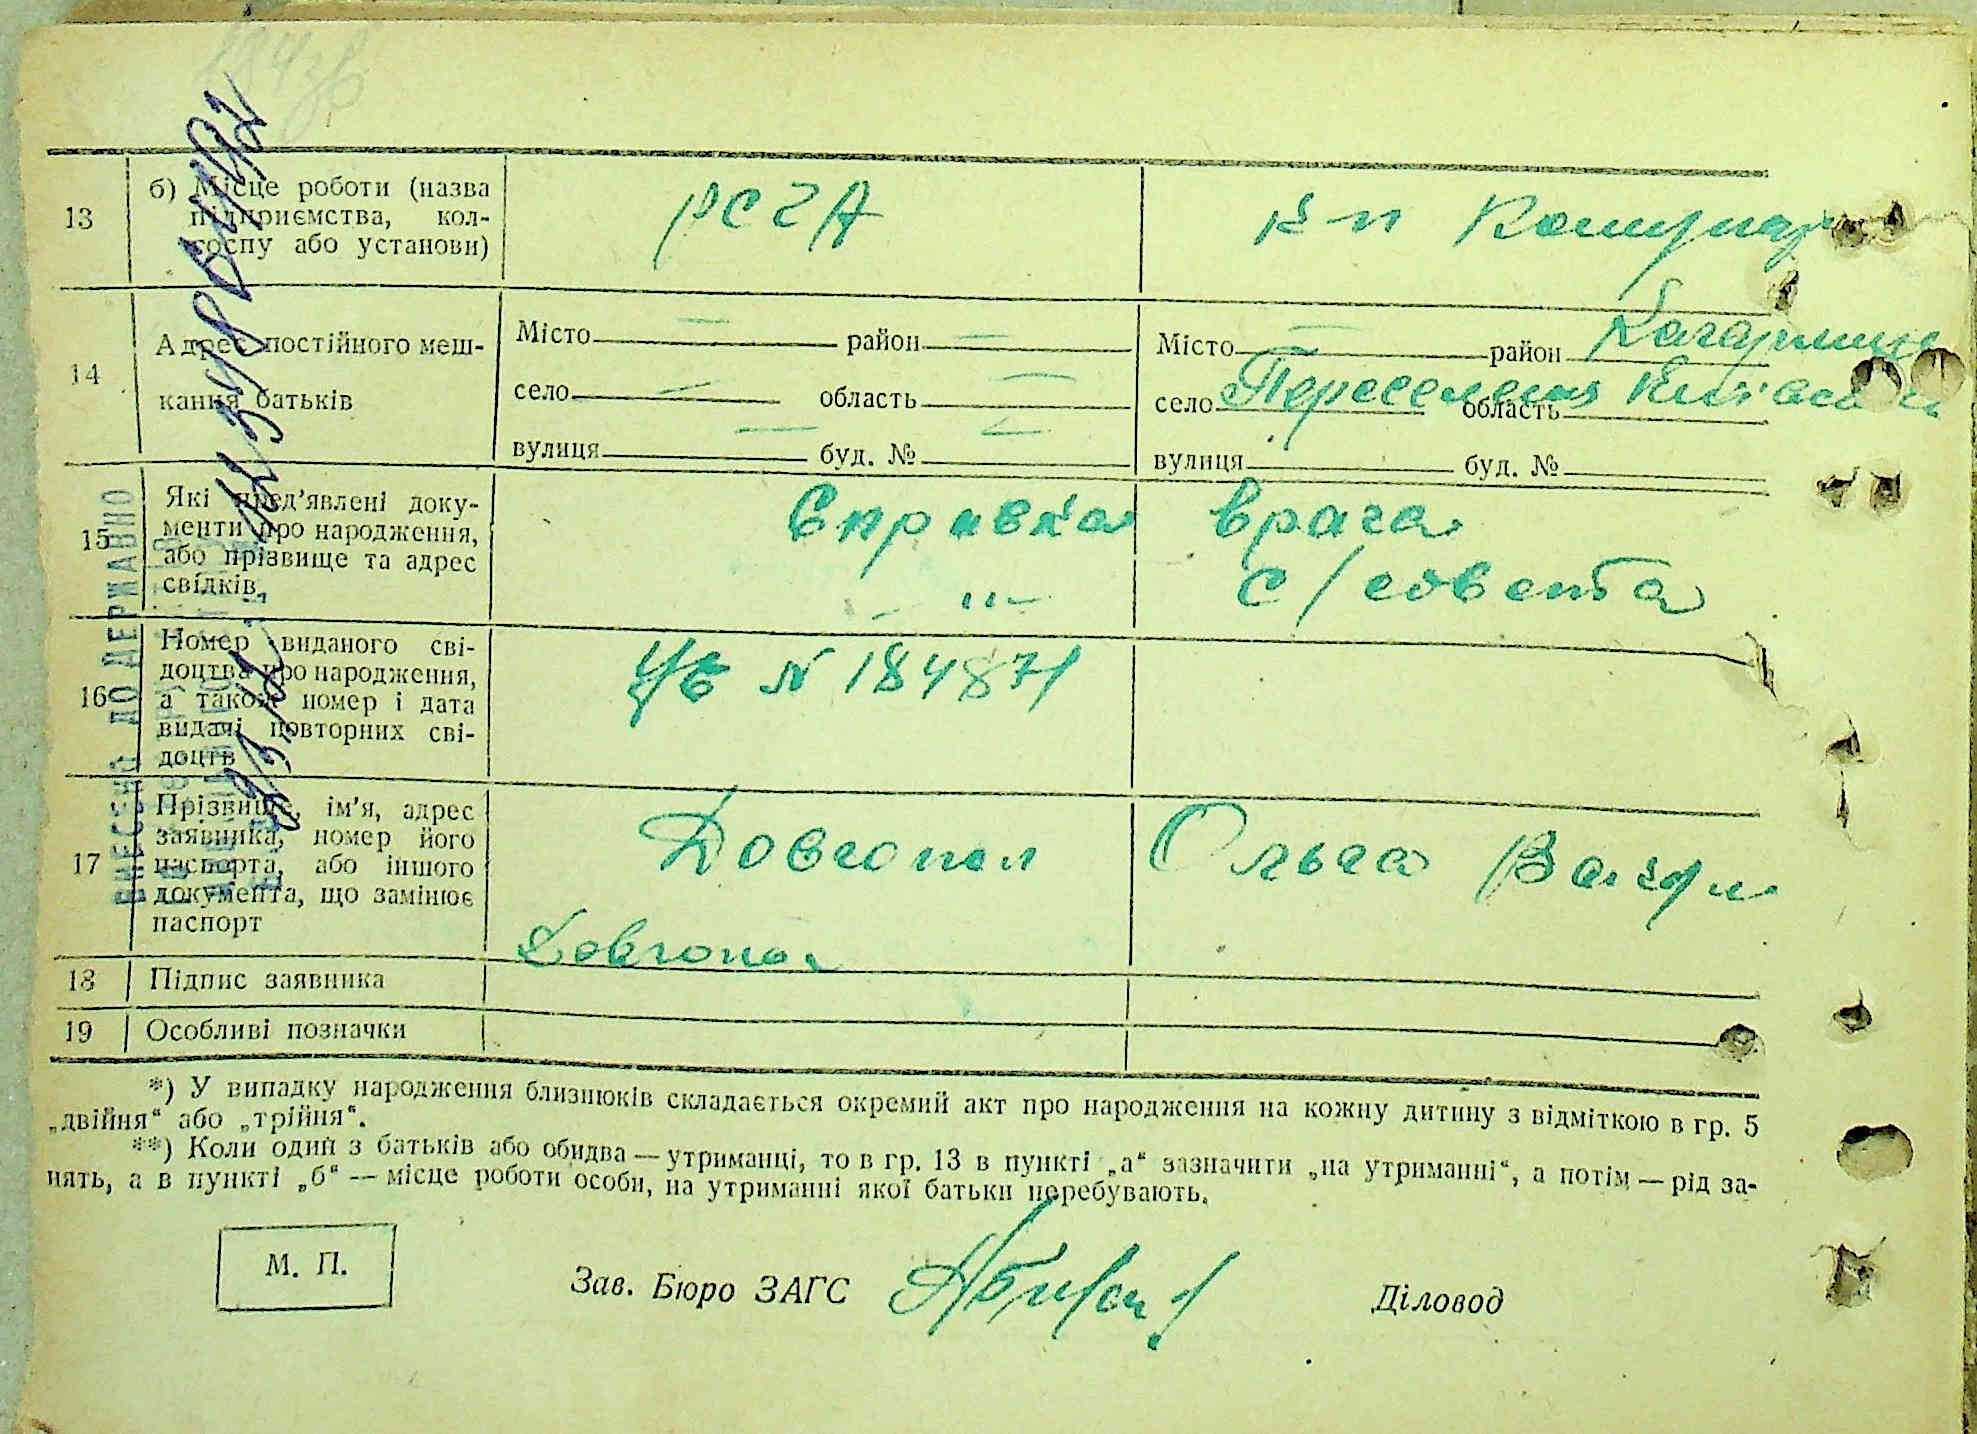 13
б) Місце роботи (назва
підприємства, кол-
госпу або установи)
РСЧА
к-п Комунар
14
Адрес постійного меш-
кання батьків
Місто — район —
село — область —
вулиця — буд. № —
Місто — район Кагарлицьк
село Переселення область Київська
вулиця буд. №
15
Які пред'явлені доку-
менти про народження,
або прізвище та адрес
свідків.
Справка врача
— „ — с/совета
16
Номер виданого сві-
доцтва про народження,
а також номер і дата
видачі повторних сві-
доцтв
№ 184871
17
Прізвище, ім'я, адрес
заявника, номер його
паспорта, або іншого
документа, що замінює
паспорт
Довгопол Ольга Захар
18
Підпис заявника
Довгопол
19
Особливі позначки
*) У випадку народження близнюків складається окремий акт про народження на кожну дитину з відміткою в гр. 5
„двійня“ або „трійня“.
**) Коли один з батьків або обидва — утриманці, то в гр. 13 в пункті „а“ зазначити „на утриманні“, а потім — рід за-
нять, а в пункті „б“ — місце роботи особи, на утриманні якої батьки перебувають.
М. П.
Зав. Бюро ЗАГС
Діловод
ВНЕСЕНО ДО ДЕРЖАВНО